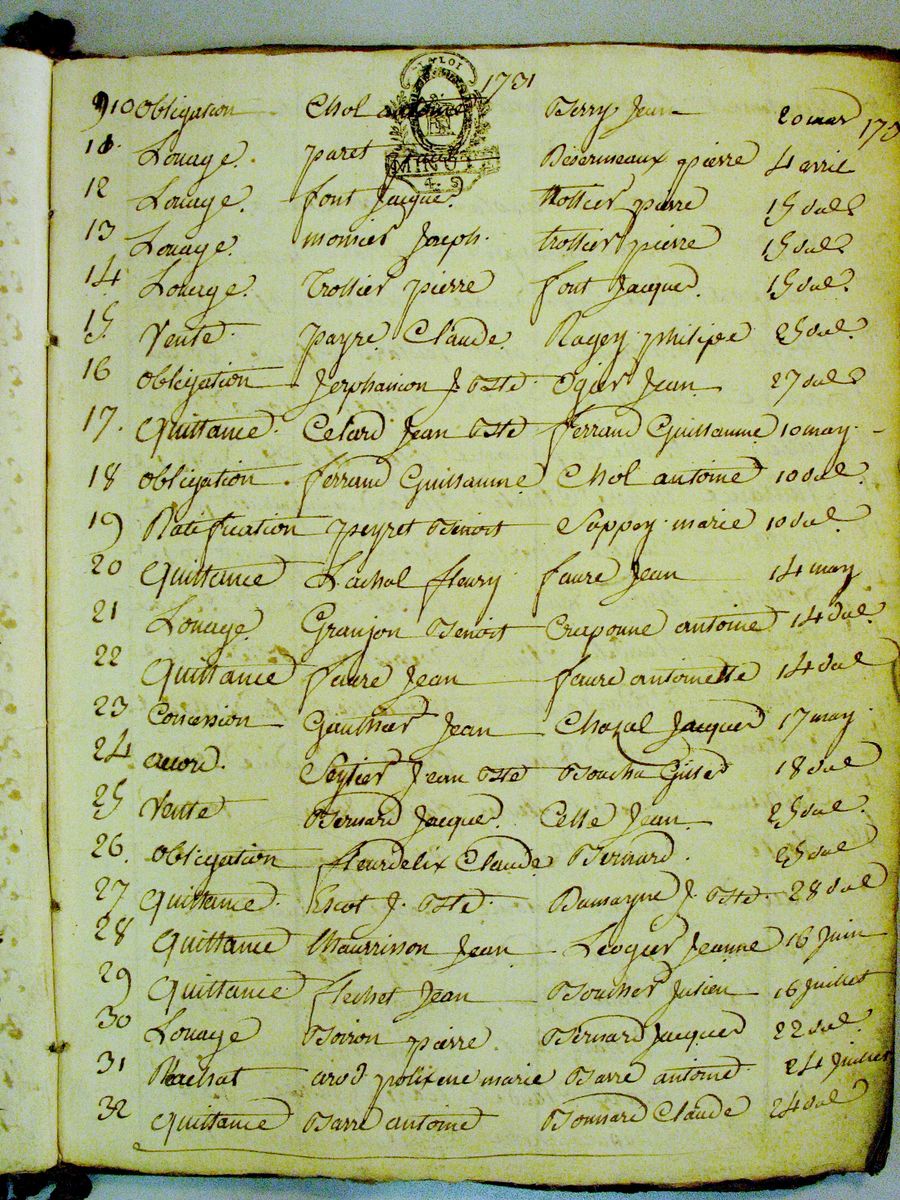 LA LOI
1731
910 Obligation Chol antoine Berry Jean 20 mar 173
MINUTE
4. S
11. Louage. paret Desermeaux pierre 4 avril
12 Louage. font Jacque. trottier pierre 15 dud
13 Louage. monier Joseph. trottier pierre 15 dud
14 Louage. Trottier pierre font Jacque 15 dud.
15 Vente. payre Claude Ragey philipe 25 dud.
16 Obligation Jerphanion J. Bte. Ogier Jean 27 dud
17. Quittance. Celard Jean Bte ferrand Guillaume 10 may.
18 obligation. ferrand Guillaume Chol antoine 10 dud.
19 Ratification peyret Benoit Sappey marie 10 dud.
20 Quittance Lachal fleury faure Jean 14 may
21 Louage Granjon Benoit Craponne antoine 14 dud.
22 Quittance faure Jean faure antoinette 14 dud
23 Concession Gauthier Jean Chazal Jacque 17 may.
24 acord. Seytier Jean Bte Boucha Gilles 18 dud
25 Vente Bernard Jacque. Celle Jean 25 dud.
26. obligation fleurdelix Claude Bernard. 25 dud
27 Quittance. Escot J. Bte. J. Bte. 28 dud
28 Quittance Maurisson Jean Leogier Jeanne 16 Juin
29 Quittance flechet Jean Boucher Julien 16 Juillet
30 Louage Boiron pierre Bernard Jacque 22 dud.
31 Rachat arod polixene marie Barre antoine 24 Juillet
32 Quittance Barre antoine Bonnard Claude 24 dud